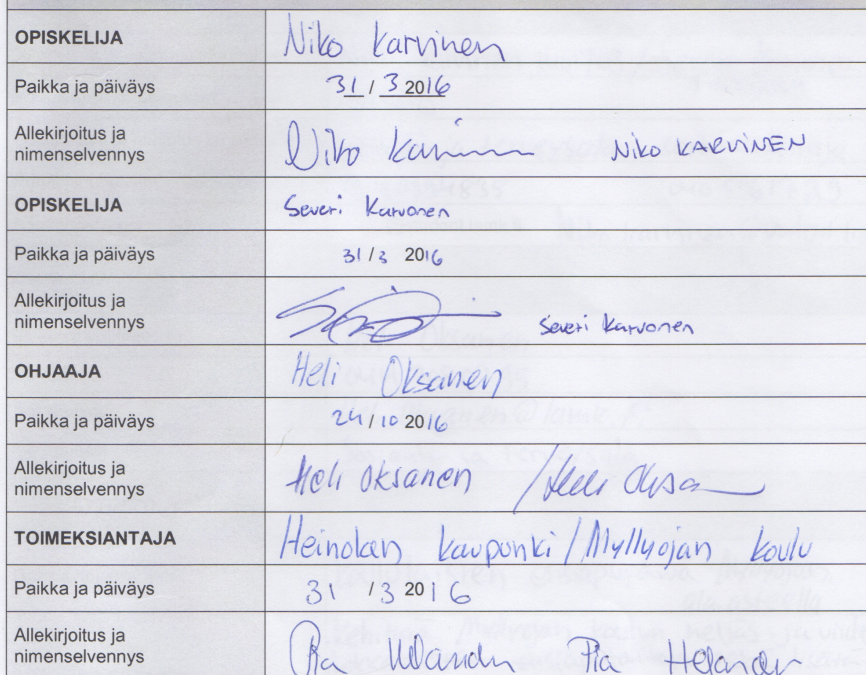 OPISKELIJA Niko Karvinen
Paikka ja päiväys 31 / 3 2016
Allekirjoitus ja
nimenselvennys Niko Karvinen NIKO KARVINEN
OPISKELIJA Severi Karvonen
Paikka ja päiväys 31 / 3 2016
Allekirjoitus ja
nimenselvennys Severi Karvonen
OHJAAJA Heli Oksanen
Paikka ja päiväys 24 / 10 2016
Allekirjoitus ja
nimenselvennys Heli Oksanen / Heli Oksa
TOIMEKSIANTAJA Heinolan kaupunki / Myllyojan koulu
Paikka ja päiväys 31 / 3 2016
Allekirjoitus ja
nimenselvennys Pia Helander Pia Helander